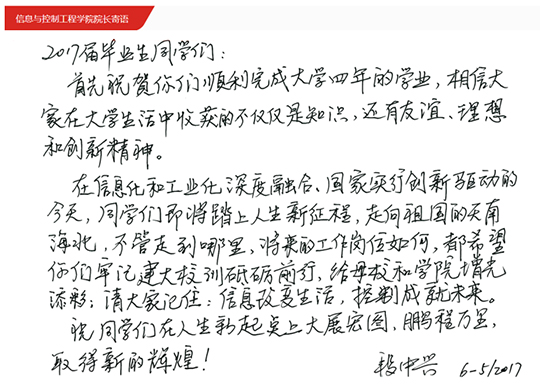 信息与控制工程学院院长寄语
2017届毕业生同学们：
首先祝贺你们顺利完成大学四年的学业，相信大
家在大学生活中收获的不仅仅是知识，还有友谊、理想
和创新精神。
在信息化和工业化深度融合、国家实行创新驱动的
今天，同学们即将踏上人生新征程，走向祖国的天南
海北，不管走到哪里，将来的工作岗位如何，都希望
你们牢记建大校训砥砺前行，给母校和学院增光
添彩；请大家记住：信息改变生活，控制成就未来。
祝同学们在人生新起点上大展宏图，鹏程万里，
取得新的辉煌！
段中兴 6-5/2017